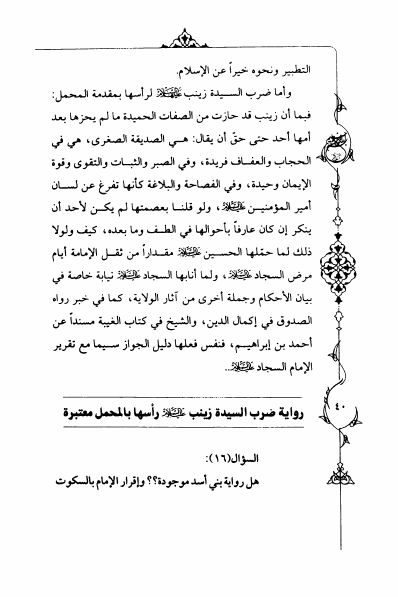 التطبير ونحوه خيراً عن الإسلام.
وأما ضرب السيدة زينب عليها السلام لرأسها بمقدمة المحمل:
فبما أن زينب قد حازت من الصفات الحميدة ما لم يحزها بعد
أمها أحد حتى حقّ أن يقال: هي الصديقة الصغرى، هي في
الحجاب والعفاف فريدة، وفي الصبر والثبات والتقوى وقوة
الإيمان وحيدة، وفي الفصاحة والبلاغة كأنها تفرغ عن لسان
أمير المؤمنين عليه السلام، ولو قلنا بعصمتها لم يكن لأحد أن
ينكر إن كان عارفاً بأحوالها في الطف وما بعده، كيف ولولا
ذلك لما حمّلها الحسين عليه السلام مقداراً من ثقل الإمامة أيام
مرض السجاد عليه السلام، ولما أنابها السجاد عليه السلام نيابة خاصة في
بيان الأحكام وجملة أخرى من آثار الولاية، كما في خبر رواه
الصدوق في إكمال الدين، والشيخ في كتاب الغيبة مسنداً عن
أحمد بن إبراهيم، فنفس فعلها دليل الجواز سيما مع تقرير
الإمام السجاد عليه السلام...
٤٠
رواية ضرب السيدة زينب عليها السلام رأسها بالمحمل معتبرة
السؤال(١٦):
هل رواية بني أسد موجودة؟؟ وإقرار الإمام بالسكوت